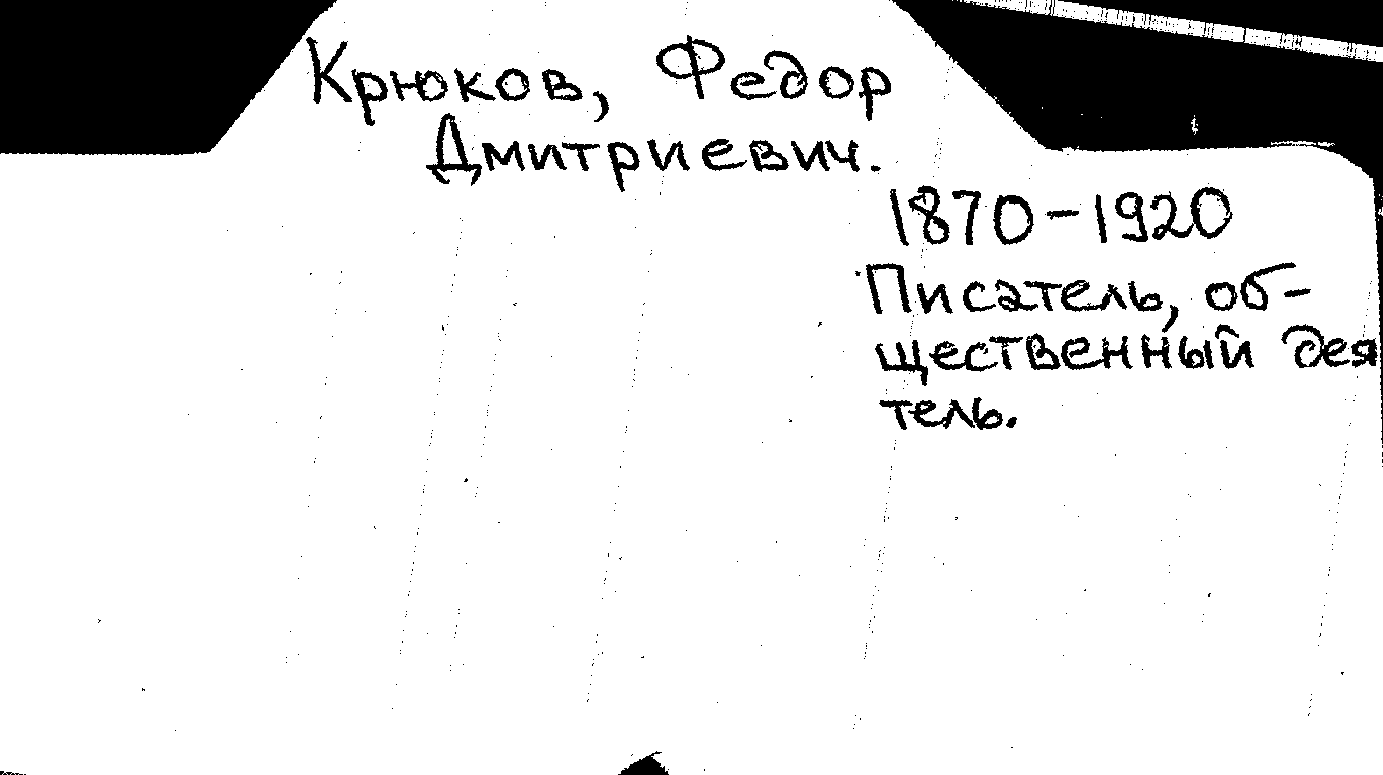 Крюков, Федор
Дмитриевич.
1870-1920
Писатель, об-
щественный дея
тель.